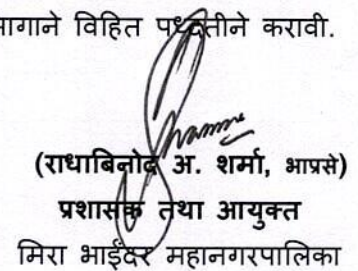 ागाने विहित पध्दतीने करावी.
(राधाबिनोद अ. शर्मा, भाप्रसे)
प्रशासक तथा आयुक्त
मिरा भाईंदर महानगरपालिका